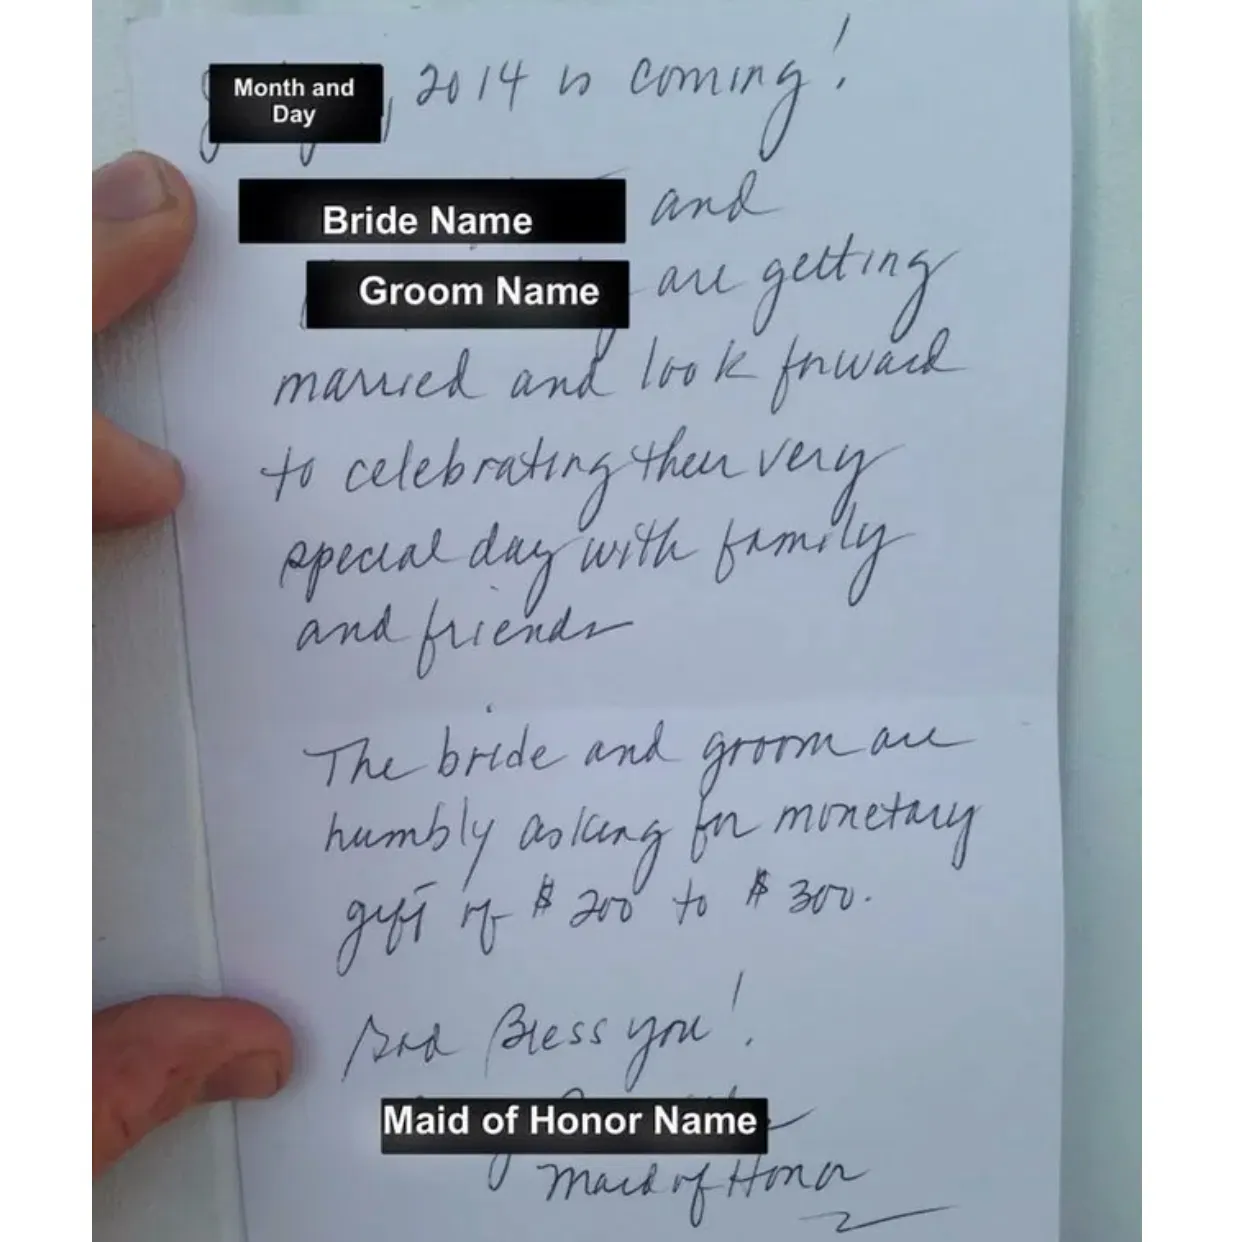 Month and Day, 2014 is coming!
Bride Name and
Groom Name are getting
married and look forward
to celebrating their very
special day with family
and friends
The bride and groom are
humbly asking for monetary
gift of $200 to $300.
God Bless you!
Maid of Honor Name
Maid of Honor